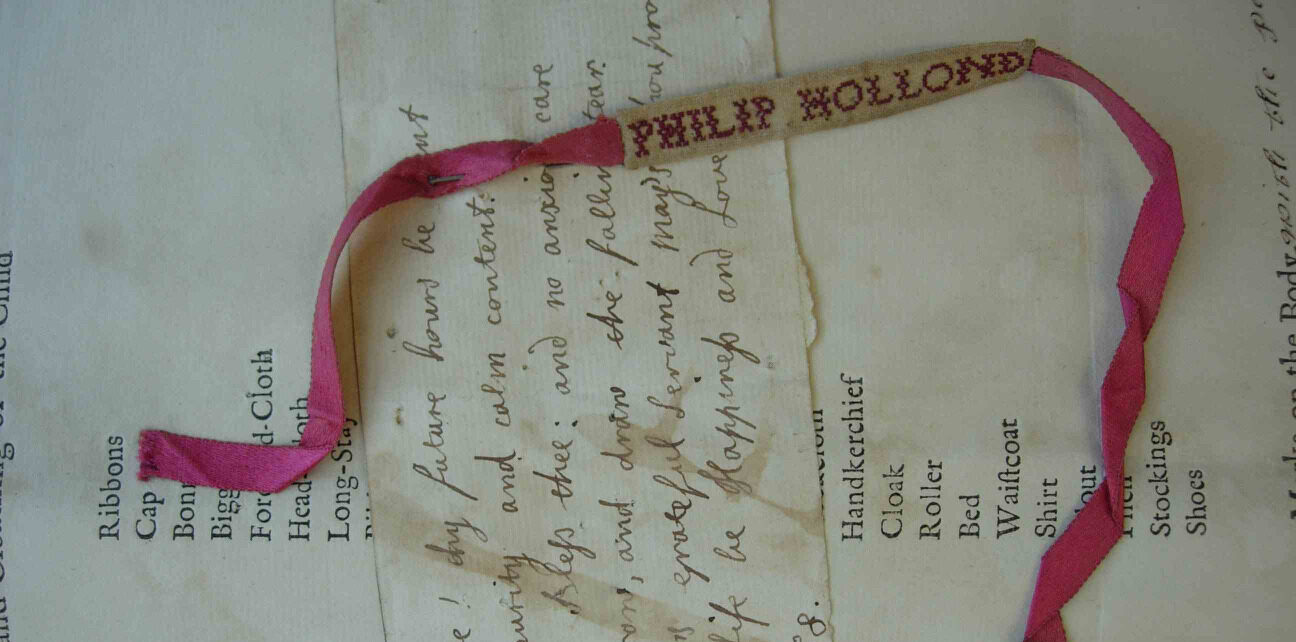 PHILIP HOLLOND
and Cleathing of the Child
Ribbons
Cap
Bonn
Bigg
For d-Cloth
Head- loth
Long-Stay
Handkerchief
Cloak
Roller
Bed
Waiſtcoat
Shirt
out
Stockings
Shoes
Marks on the Body
with the pa
e! thy future hours be
urity and calm content.
Bleſs thee: and no anxio care
and draw the fallin tear.
grateful Servant may'st thou pro
life be Happineſs and Love